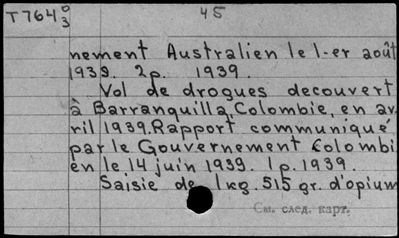 T7640/3 45
nement Australien le 1-er août
1939. 2p. 1939.
Vol de drogues decouvert
à Barranquilla, Colombie, en av-
ril 1939. Rapport communiqué
par le Gouvernement Colombi
en le 14 juin 1939. 1p. 1939.
Saisie de 1kg. 515 gr. d'opium
См. след. карт.